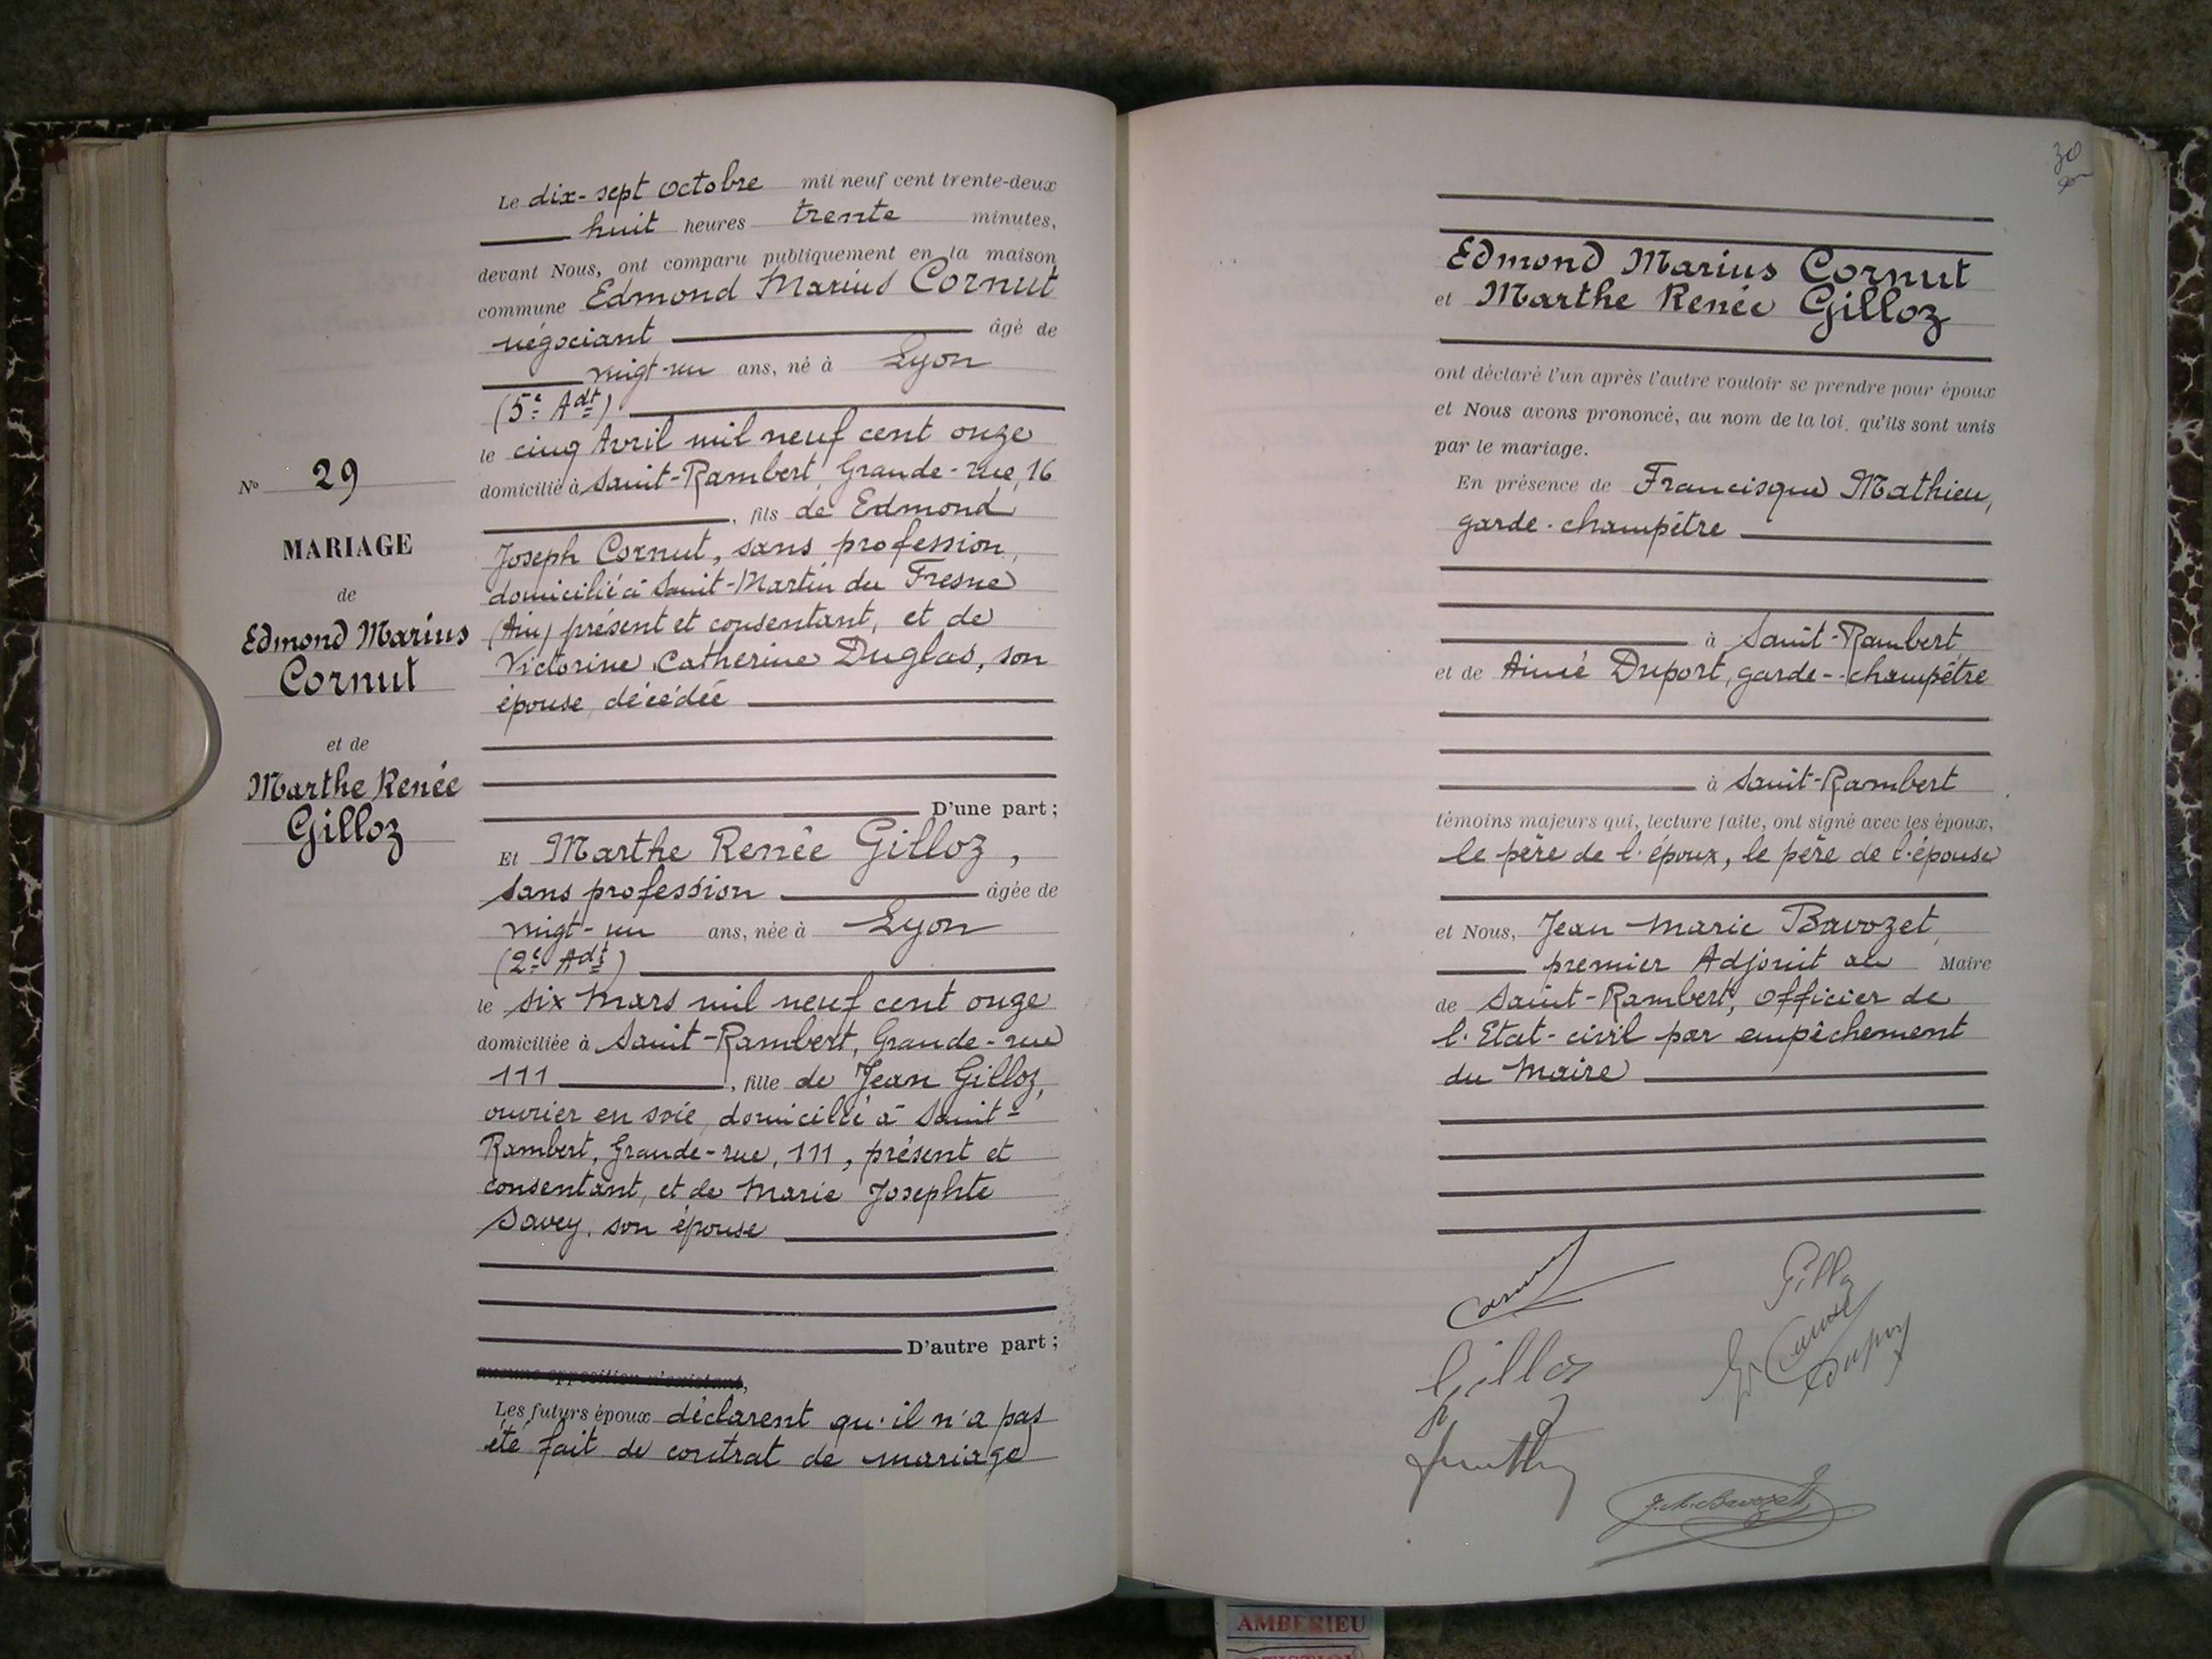 N° 29
MARIAGE
de
Edmond Marius
Cornut
et de
Marthe Renée
Gilloz
Le dix-sept octobre mil neuf cent trente-deux
huit heures trente minutes,
devant Nous, ont comparu publiquement en la maison
commune Edmond Marius Cornut
négociant âgé de
vingt-un ans, né à Lyon
(5e Adt)
le cinq Avril mil neuf cent onze
domicilié à Saint-Rambert, Grande-rue, 16
, fils de Edmond
Joseph Cornut, sans profession,
domicilié à Saint-Martin du Fresne
(Ain) présent et consentant, et de
Victorine Catherine Duglas, son
épouse, décédée
D'une part;
Et Marthe Renée Gilloz,
sans profession âgée de
vingt-un ans, née à Lyon
(2e Adt)
le six Mars mil neuf cent onze
domiciliée à Saint-Rambert, Grande-rue
111, fille de Jean Gilloz,
ouvrier en soie, domicilié à Saint-
Rambert, Grande-rue, 111, présent et
consentant, et de Marie Josephte
Savey, son épouse
D'autre part;
aucune opposition n'existant,
Les futurs époux déclarent qu'il n'a pas
été fait de contrat de mariage
30
Edmond Marius Cornut
et Marthe Renée Gilloz
ont déclaré l'un après l'autre vouloir se prendre pour époux
et Nous avons prononcé, au nom de la loi, qu'ils sont unis
par le mariage.
En présence de Francisque Mathieu,
garde-champêtre
à Saint-Rambert
et de Aimé Duport, garde-champêtre
à Saint-Rambert
témoins majeurs qui, lecture faite, ont signé avec les époux,
le père de l'époux, le père de l'épouse
et Nous, Jean Marie Bavozet,
premier Adjoint au Maire
de Saint-Rambert, officier de
l'Etat-civil par empêchement
du Maire
Gilloz
J.M. Bavozet
AMBERIEU